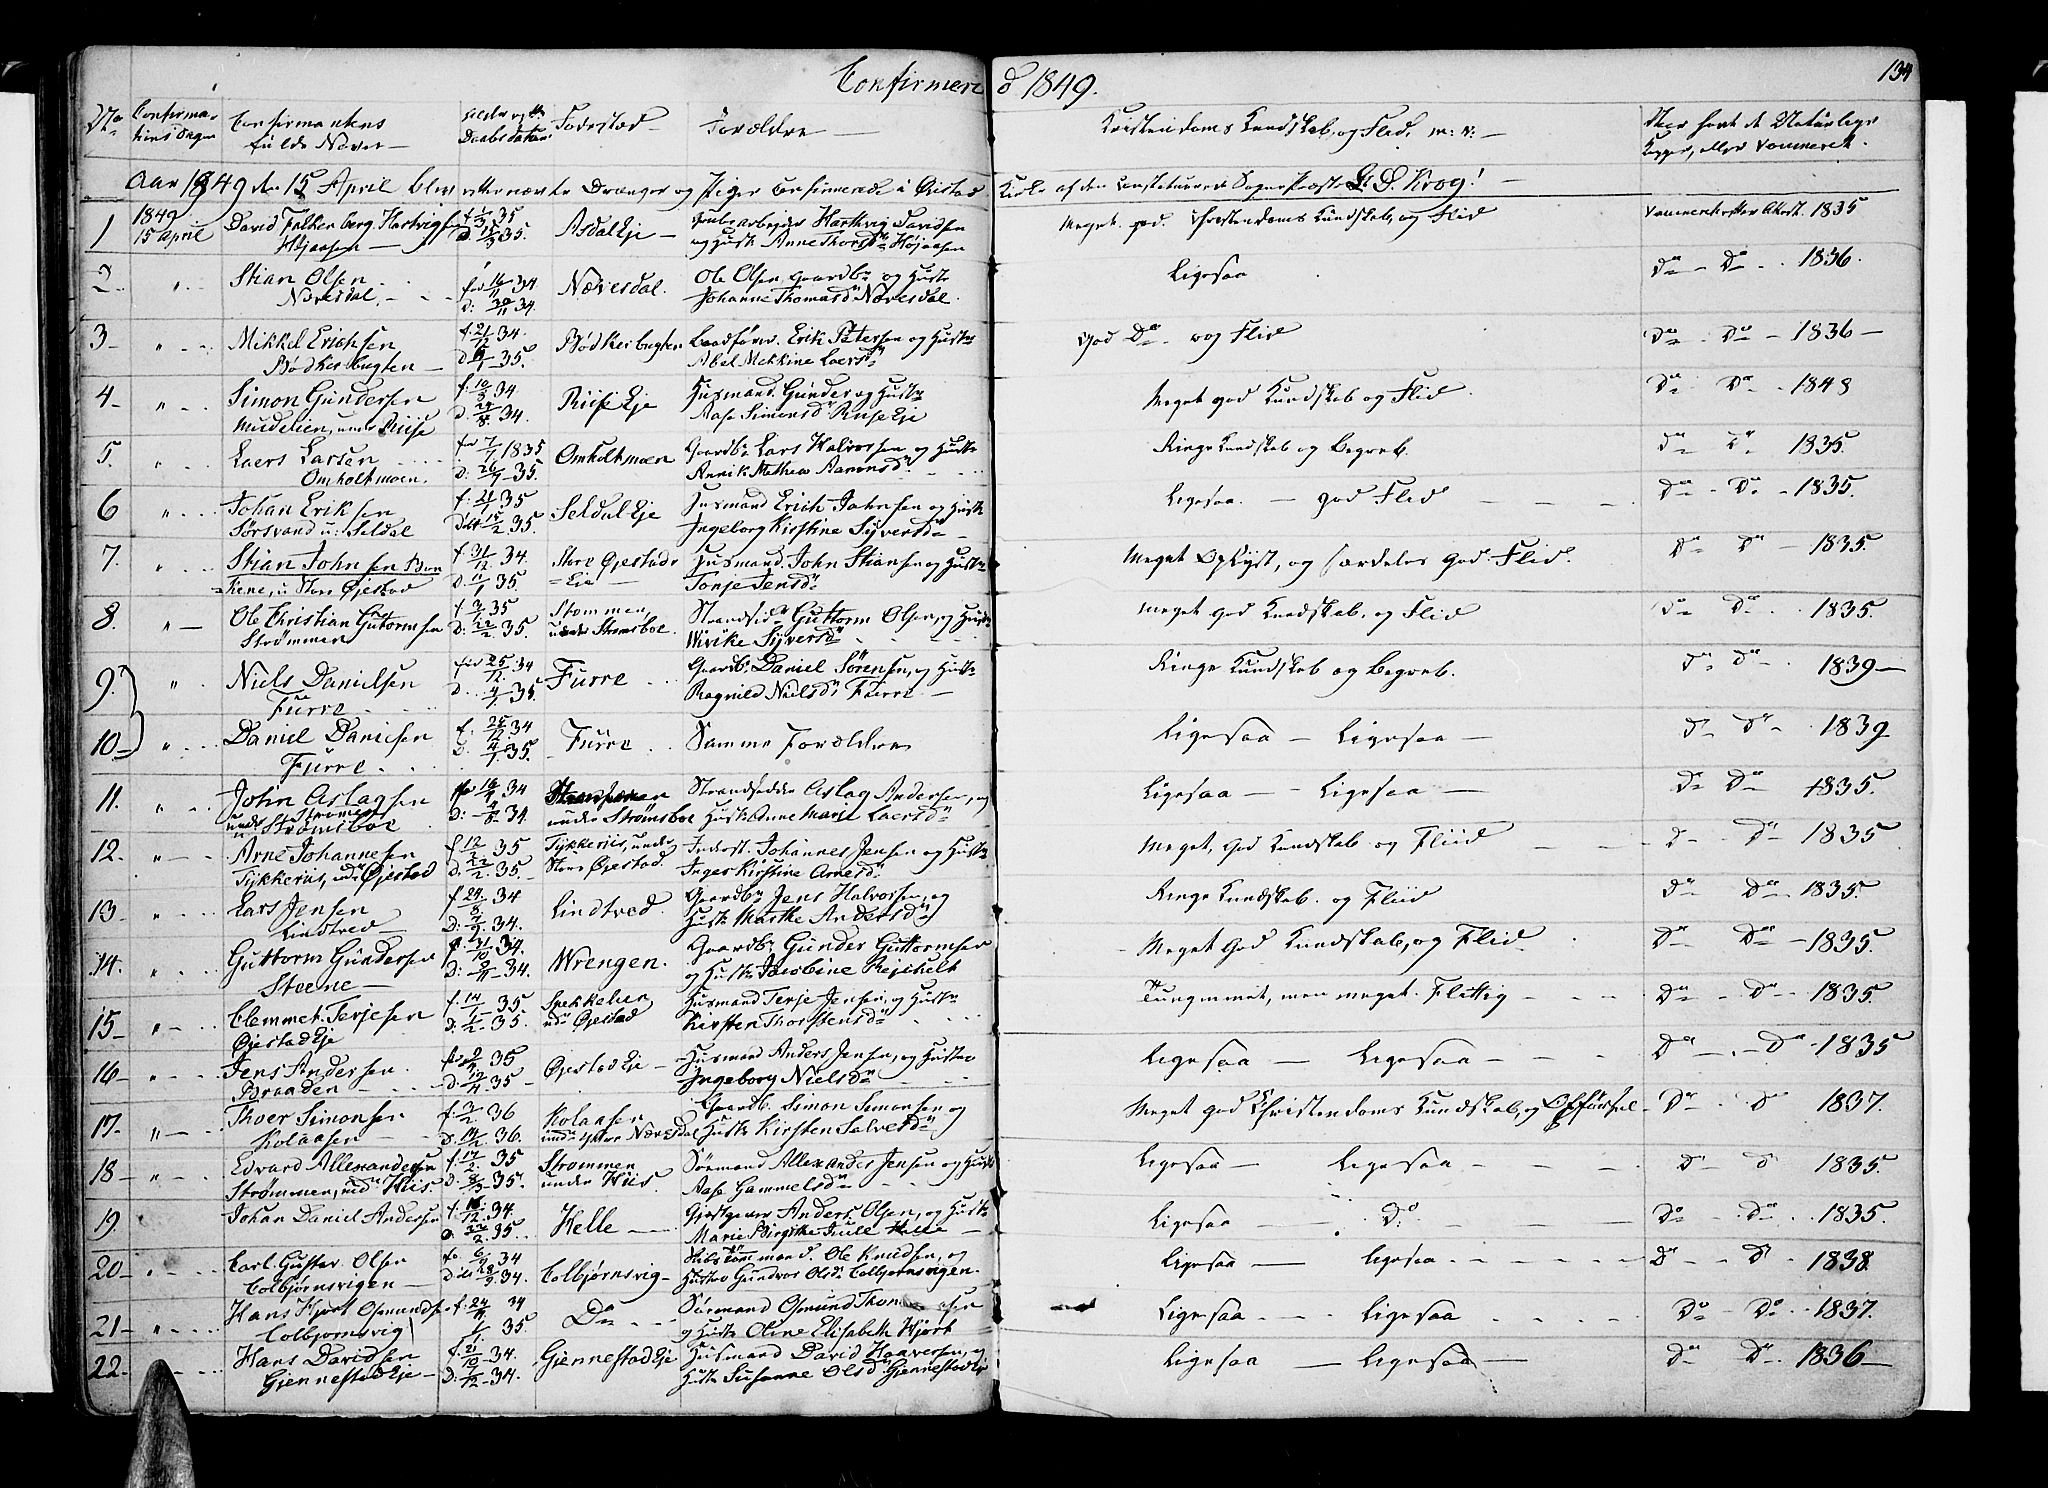 Confirmere
d 1849.
134
No
Confirmantens fulde Navne
Daabsdatum
Fødested
Forældre
Kristendoms Kundskab, og Flid. m: v:
Aar 1849 den 15 April blev efternævnte Drenger og Piger confirmerede i Øiestad
Kirke af den constituerede Sogne Præst Krog!
1 1849 15 April David Falkenberg Hartvigsen Højaasen 35 35. Asdal Eje Hartvig Davidsen og Hustr Anne Thorsdr Højaasen
Meget god Christendoms Kundskab, og Flid 1835
2 " Stian Olsen Nævesdal 16/11 34 D: 34. Nævesdal. Ole Olsen gaardbr og Hustr Johanne Thomasdr Nævesdal.
Ligesaa Do Do 1836.
3 " Mikkel Erichsen Bødkerbugten f: 21/12 34. 35. Bødkerbugten Erik Petersen og Hustr Abel Mekkine Laersdr
God Do og Flid Do Do 1836
4 " Simon Gundersen Mudelien, under Riise f: 34 D. 34. Riise Eje Husmand. Gunder og Hustr Aase Simonsdr Riise Eje
Meget god Kundskab og Flid. Do Do 1848
5. " Laers Larsen Omholtmoen. 7/1 1835 D: 26/1 35. Omholtmoen Gaardbr Lars Halvorsen og Hustr Annik Mathea Aanonsdr
Ringe Kundskab og Begreb. Do Do 1835
6 " Johan Eriksen Sørsvand u: Seldal f: 21/1 35 15/2 35. Seldal Eje Husmand Erich Johnsen og Hustr Ingeborg Kirstine Syversdr
Ligesaa. god Flid Do Do 1835.
7. " Stian Johnsen u Store Øjestad f: 31/12 34. D. 11/1 35. Store Øjestads Eje Husmand. John Stiansen og Hustr Tonje Jensdr
Meget Oplyst, og særdeles god Flid. Do Do 1835.
8. " Ole Christian Guttormsen Strømmen f: 3/2 35 D: 22/2 35. Strommen, under Strømsboe. Strandsid. Guttorm Olsen, og Hustr Wivike Syversdr
Meget god Kundskab, og Flid Do Do 1835.
9. " Niels Danielsen Furre 25/12 34 D. 4/1 35. Furre Gaardbr Daniel Sørensen, og Hustr Ragnild Nielsdr Furre
Ringe Kundskab og Begreb. Do Do 1839
10 " Daniel Danielsen Furre f. 25/12 34 D. 4/1 35. Furre Samme Forældre
Ligesaa Ligesaa Do Do 1839
11. " John Aslagsen under Strømsboe 34 D: 34. under Strømsboe Strandsidder Aslag Andersen, og Hustr Anne Marie Laersdr
Ligesaa Ligesaa Do Do 1835.
12. " Arne Johannesen Tykkeriis, undr Øjestad f. 12/2 35 D: 22/2 35. Tykkeriis, under Store Øjestad. Inderst. Johannes Jensen og Hustr Inger Kirstine Arnesdr
Meget, god Kundskab og Fliid Do Do 1835
13 " Lars Jensen Lindtved f. 24/8 34 D. 7/9 34. Lindtved. Gaardbr Jens Halvorsen, og Hustr Marthe Andersdr
Ringe Kundskab. og Fliid Do Do 1835.
14. " Guttorm Gundersen Steene 21/10 34. D: 34. Wrengen. Gaardbr Gunder Guttormsen og Hustr Jacobine
Meget God Kundskab, og Flid. Do Do 1835.
15 " Clemmet. Terjesen Øjestad Eje f: 14/1 35 D: 35. undr Øjestad Husmand Terje Jensen, og Hustr Kirsten Thorstensdr
Tungnemmet, men meget. Flittig Do Do 1835.
16 " Jens Andersen. Braaden 35 D: 12/4 35 Øjestad Eje Husmand Anders Jensen, og Hustr Ingeborg Nielsdr
Ligesaa Ligesaa Do Do 1835
17 " Thoer Simonsen Kolaasen f. 3/2 36 D. 14/2 36. Kolaasen undr Nævesdal Gaardbr. Simon Simonsen og Hustr Kirsten Salvesdr
Meget god Christendoms Kundskab, og Opførsel Do Do 1837.
18 " Edvard Allexandersen Strømmen, undr Hiis. f: 17/2. 35 D: 8/3 35. Strømmen under Hiis. Sømand Allexander Jensen og Hustr Aase Gammelsdr
Ligesaa Ligesaa Do Do 1835.
19. Johan Daniel Andersen 34. 22/2 35. Helle Gjestgever Anders. Olsen, og Hustr Marie Birgitte Juell Helle
Ligesaa Do Do Do 1835.
20 " Carl. Gustav Olsen Colbjørnsvigen 34 34. Colbjørnsvig Ole Knudsen, og Hustr Gundvor Olsdr Colbjørnsvigen.
Ligesaa ligesaa Do Do 1838.
21 " Hans Hjort Osmundsen Colbjornsvig 34 35. Do Sømand Osmund og Hustr Oline Elisabeth Hjort
Ligesaa Ligesaa Do Do 1837.
22. Hans Davidsen Gjennestad Eje f. 21/10 34. D: 34. Gjennestad Eje Husmand David Haaversen, og Hustr Susanne Olsdr Gjennestad Eje
Ligesaa Ligesaa Do Do 1836